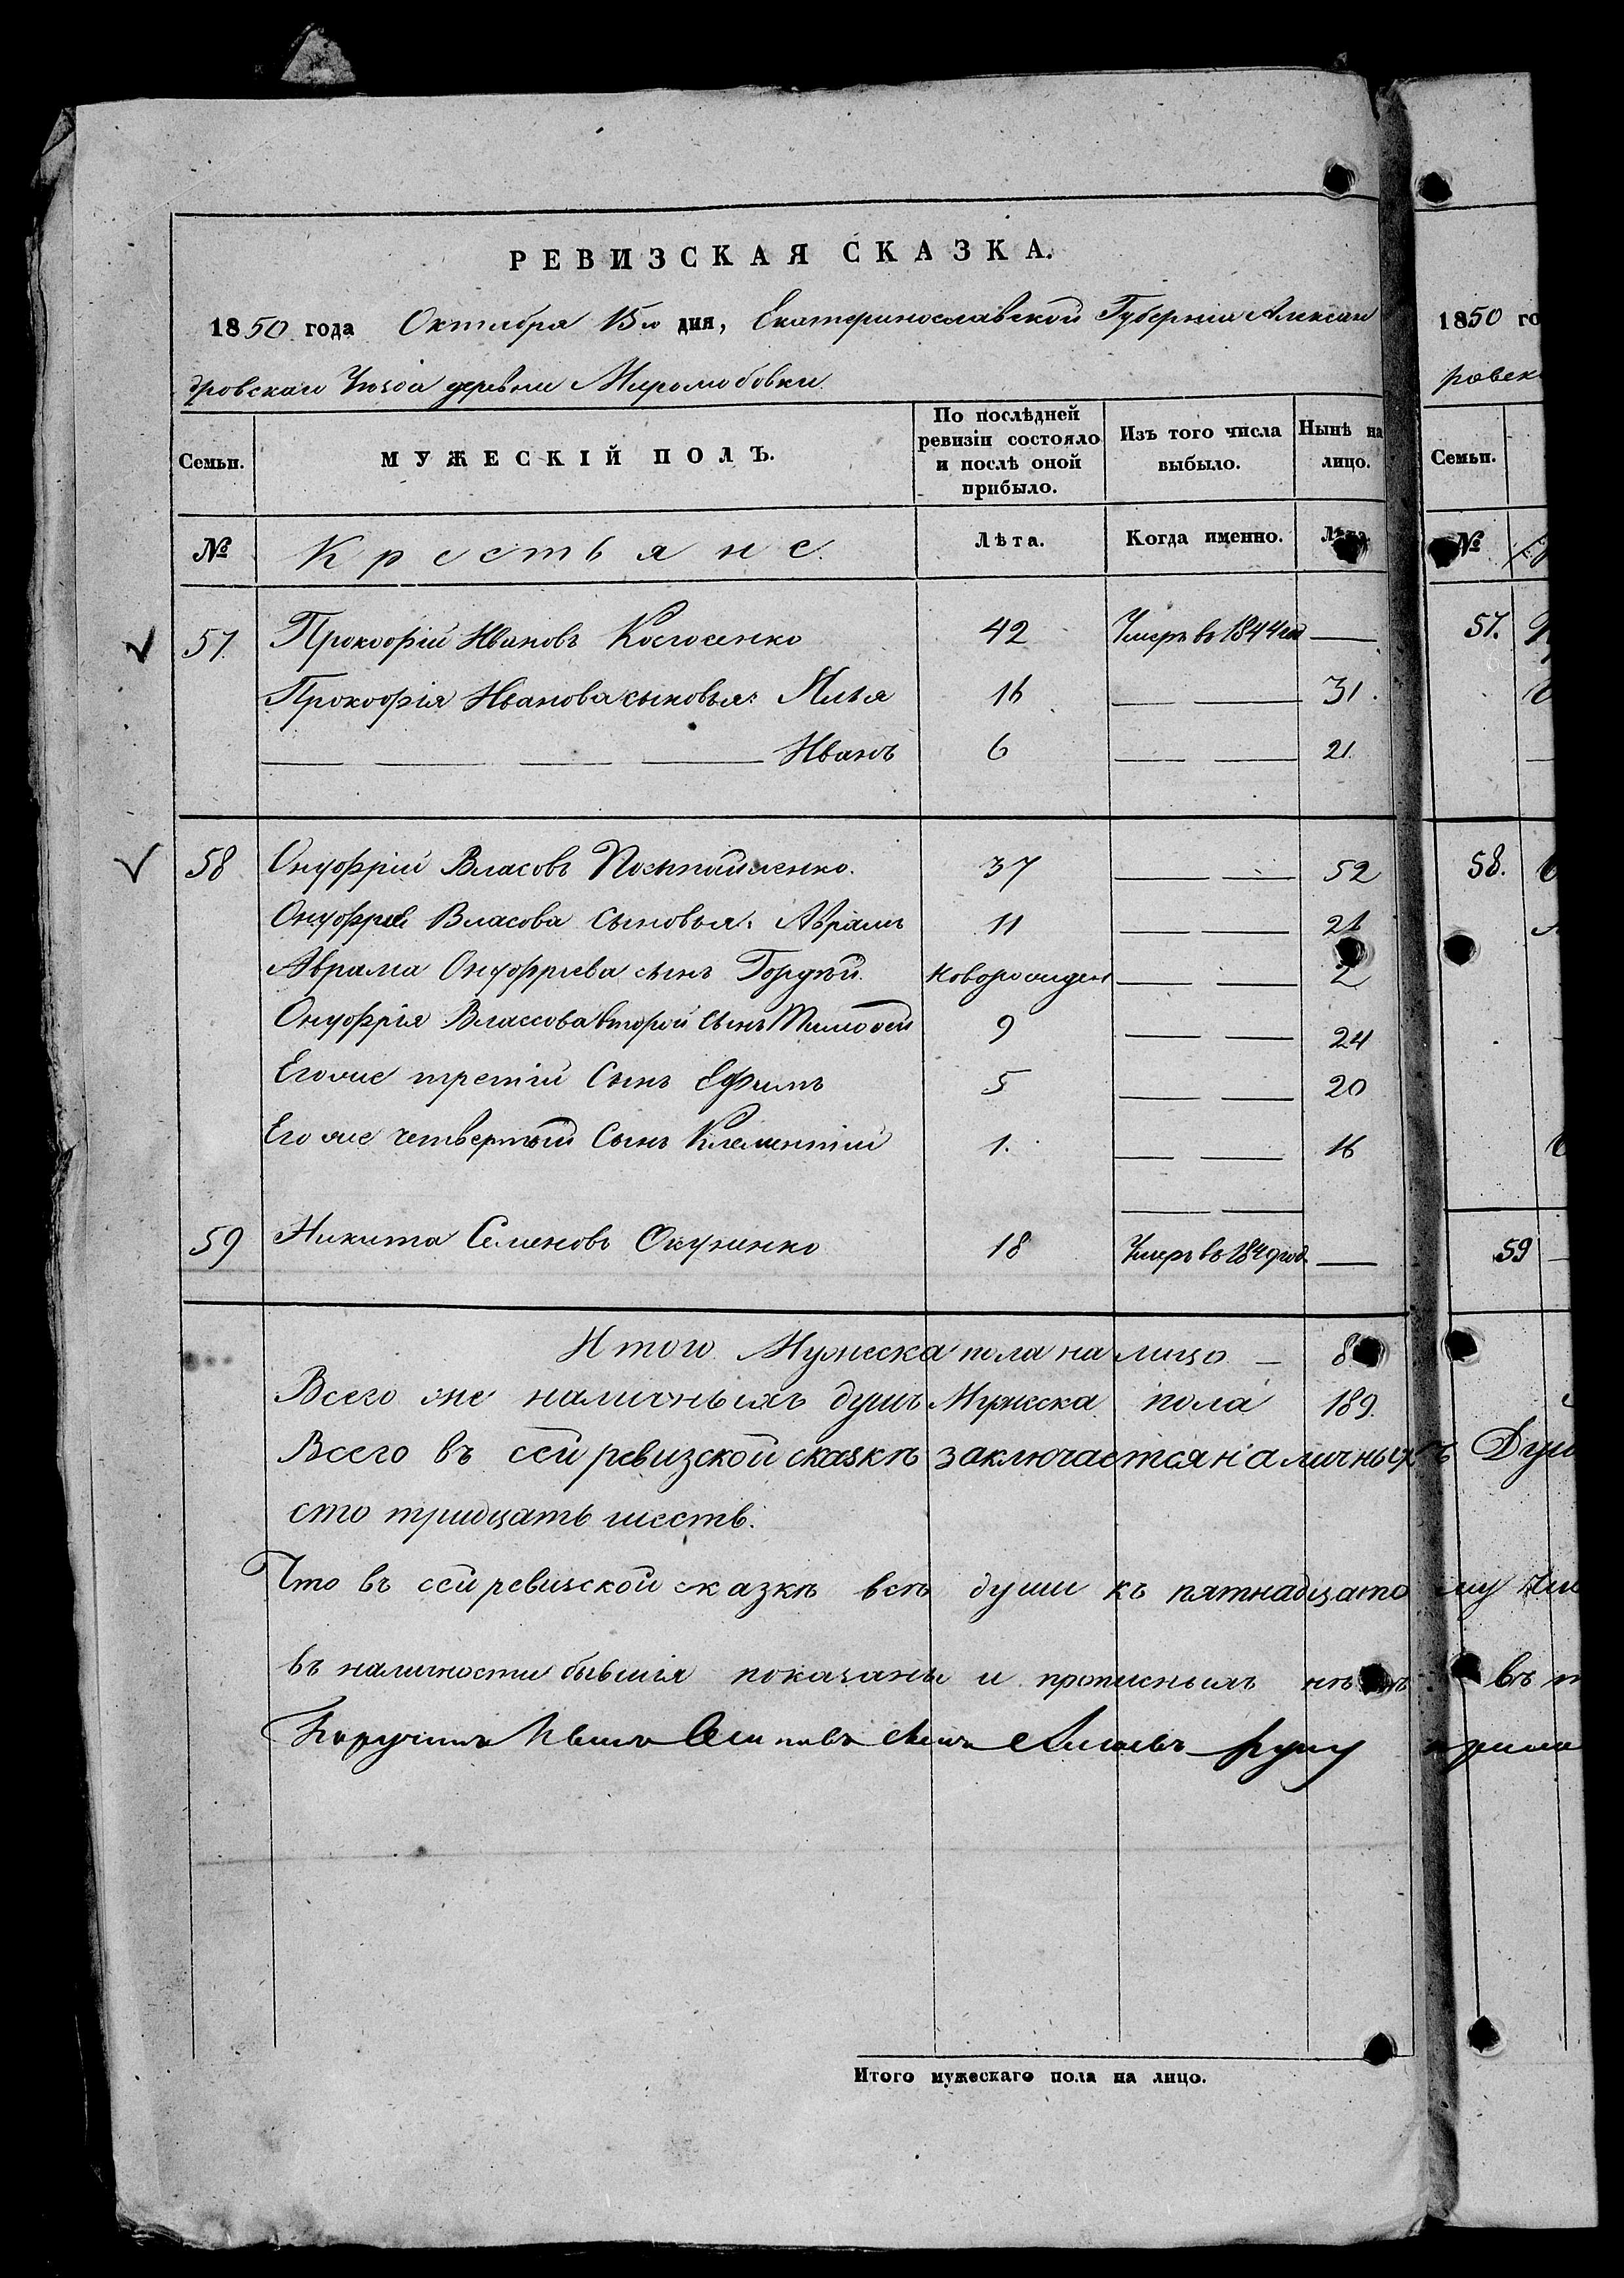 РЕВИЗСКАЯ СКАЗКА.
1850 года Октября 15го дня, Екатеринославской Губерніи Алексан
дровскаго Уезда деревни Миролюбовки.
Семьи. МУЖЕСКІЙ ПОЛЪ. По послѣдней ревизіи состояло и послѣ оной прибыло. Изъ того числа выбыло. Нынѣ на лицо.
№ Крестьяне. Лѣта. Когда именно. Лѣта.
57. Прокофій Ивановъ 42 Умеръ въ 1844 —
Прокофія Иванова сыновья: Илья 16 — — 31.
— — — — Иванъ 6 — — 21.
58 Онуфрій Власовъ 37 — — 52
Онуфрія Власова сыновья: Абрамъ 11 — — 26
Абрама Онуфріева сынъ Гордѣй. новорожден — — 2
Онуфрія Власова второй сынъ Тимофей 9 — — 24
Его же третій Сынъ Ефимъ 5 — — 20
Его же четвертый Сынъ Клементій 1. — — 16
— —
59 Никита Семеновъ Окуненко 18 Умеръ въ 1849 год. —
Итого Мужеска пола на лицо — 8
Всего же наличныхъ душъ Мужеска пола 189.
Всего въ сей ревизской сказкѣ заключается наличныхъ Душ
сто тридцать шесть.
Что въ сей ревизской сказкѣ всѣ души къ пятнадцатому
въ наличности бывшія показаны и прописныхъ въ
Поручикъ руку
Итого мужескаго пола на лицо.
1850 го
ровск
Семьи.
№
57.
58.
59